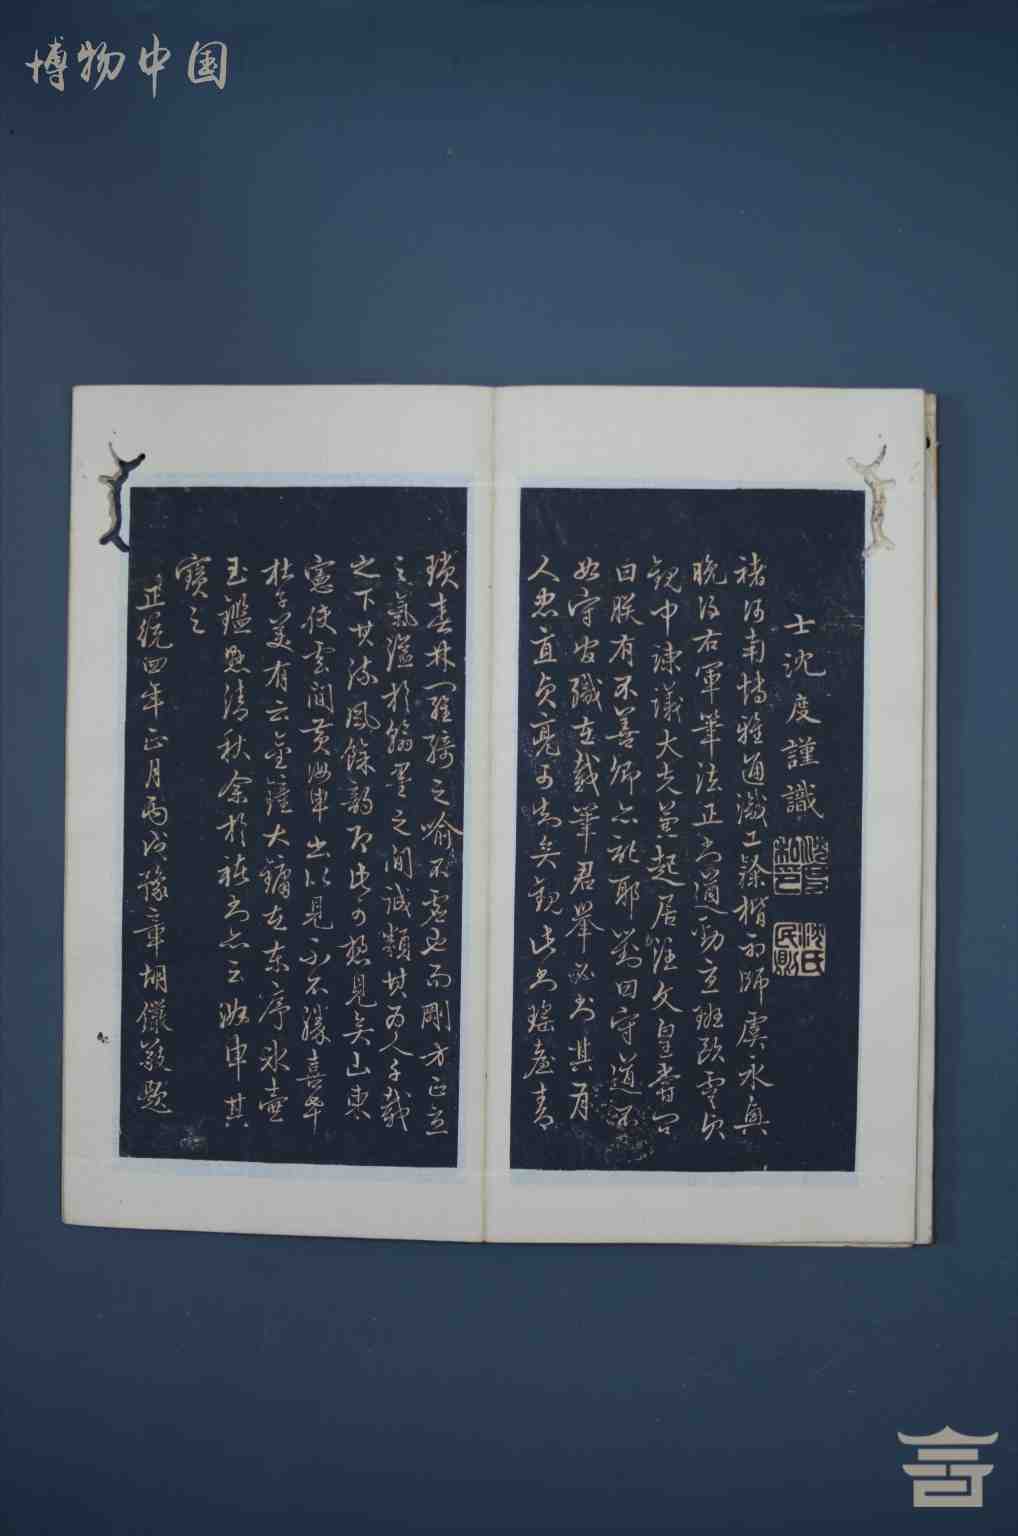 博物中国
士沈度謹識
褚河南博雅通識工隸楷初師虞永興
晚得右軍筆法正書遒勁立班歐虞
觀中諫議大夫兼起居注文皇嘗問
曰朕有不善卿亦記耶對曰守道不
如守官職在載筆君舉必書其為
人忠直貞亮可知矣觀此書瑤臺青
瑣春林羅綺之喻不虛也而剛方正立
之氣溢於翰墨之間誠類其為人千載
之下其流風餘韻即此可想見矣山東
憲使雲間黃汝申出以見示不勝喜幸
杜子美有云金鐘大鏞在東序冰壺
玉鑑懸清秋余於褚書亦云汝申其
寶之
正統四年正月丙戌豫章胡儼敬題
沈氏
民則